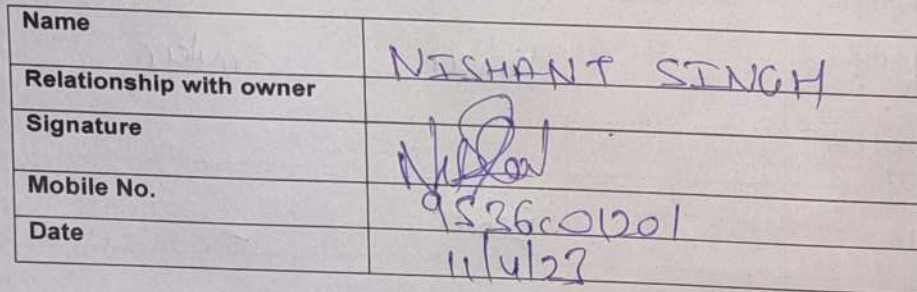 Name NISHANT SINGH
Relationship with owner
Signature
Mobile No. 9536001201
Date 11/4/23